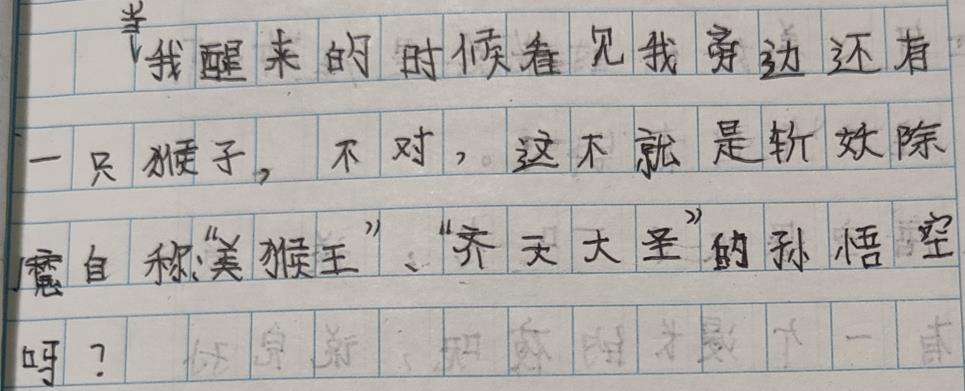 当我醒来的时候看见我旁边还有
一只猴子，不对，这不就是斩妖除
魔自称“美猴王”、“齐天大圣”的孙悟空
吗？